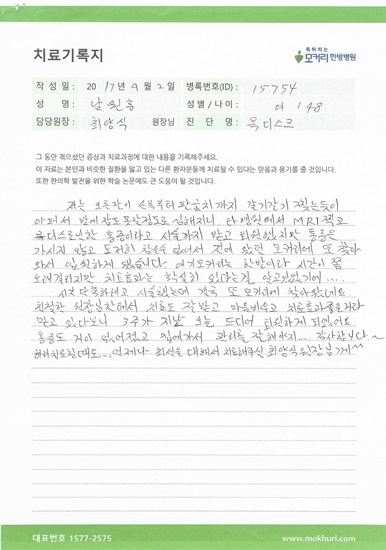 치료기록지
목허리는
모커리한방병원
작 성 일 : 2017년 9월 2일 병록번호(ID) : 15754
성 명 : 남원홍 성별 / 나이 : 여 / 48
담당원장 : 최양식 원장님 진 단 명 : 목디스크
그 동안 겪으셨던 증상과 치료과정에 대한 내용을 기록해주세요.
이 자료는 본인과 비슷한 질환을 앓고 있는 다른 환자분들께 치료될 수 있다는 믿음과 용기를 줄 것입니다.
또한 한의학 발전을 위한 학술 논문에도 큰 도움이 될 것입니다.
저는 오른팔이 손목부터 팔꿈치까지 갈기갈기 찢는듯이
아파서 밤에 잠도 못잘정도로 심해지니 타병원에서 MRI찍고
목디스크로인한 통증이라고 시술까지 받고 퇴원했지만 통증은
가시지 않고 도저히 참을수 없어서 전에 왔던 모커리에 또 찾아
와서 입원하게 됐습니다. 여기모커리는 한방이라 시간이 쫌
오래걸리지만 치료효과는 확실히 있다는걸 알고있었기에....
시간 단축하려고 시술했는데 결국 또 모커리에 찾아왔네요.
친절한 원장님한테서 치료도 잘 받고 마음비우고 치료효과좋은거라
맞고 있다보니 3주가 지난 오늘 드디어 퇴원하게 되었어요
통증도 거의 없어졌고 집에가서 관리를 잘해야지.... 감사합니다~
허리치료할때도... 언제나 최선을 다해서 치료해주신 최양식원장님께^^
대표번호 1577-2575 www.mokhuri.com